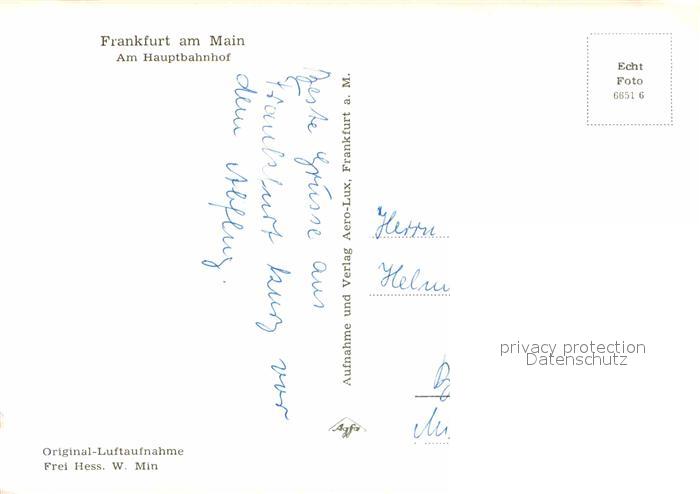 Frankfurt am Main
Am Hauptbahnhof
Echt
Foto
6651 6
Beste Grüsse aus
Frankfurt kurz vor
dem Abflug.
Aufnahme und Verlag Aero-Lux, Frankfurt a. M.
Herrn
Helm
privacy protection
Datenschutz
Agfa
Original-Luftaufnahme
Frei Hess. W. Min